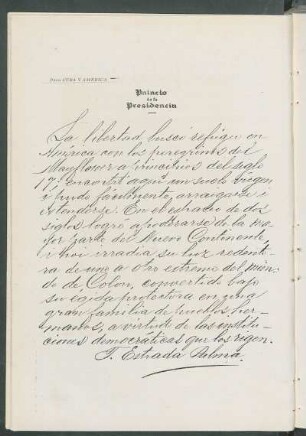 Para CUBA Y AMÉRICA
Palacio
de la
Presidencia
La libertad buscó refugio en
América con los peregrinos del
Mayflower a principios del siglo
17; encontró aquí un suelo virgen
i pudo fácilmente arraigarse i
extenderse. En el espacio de dos
siglos logró apoderarse de la ma-
yor parte del Nuevo Continente
i hoi irradia su luz redento-
ra de uno a otro extremo del mun-
do de Colon, convertido bajo
su egida protectora en una
gran familia de pueblos her-
manos, a virtud de las institu-
ciones democráticas que los rigen.
T. Estrada Palma